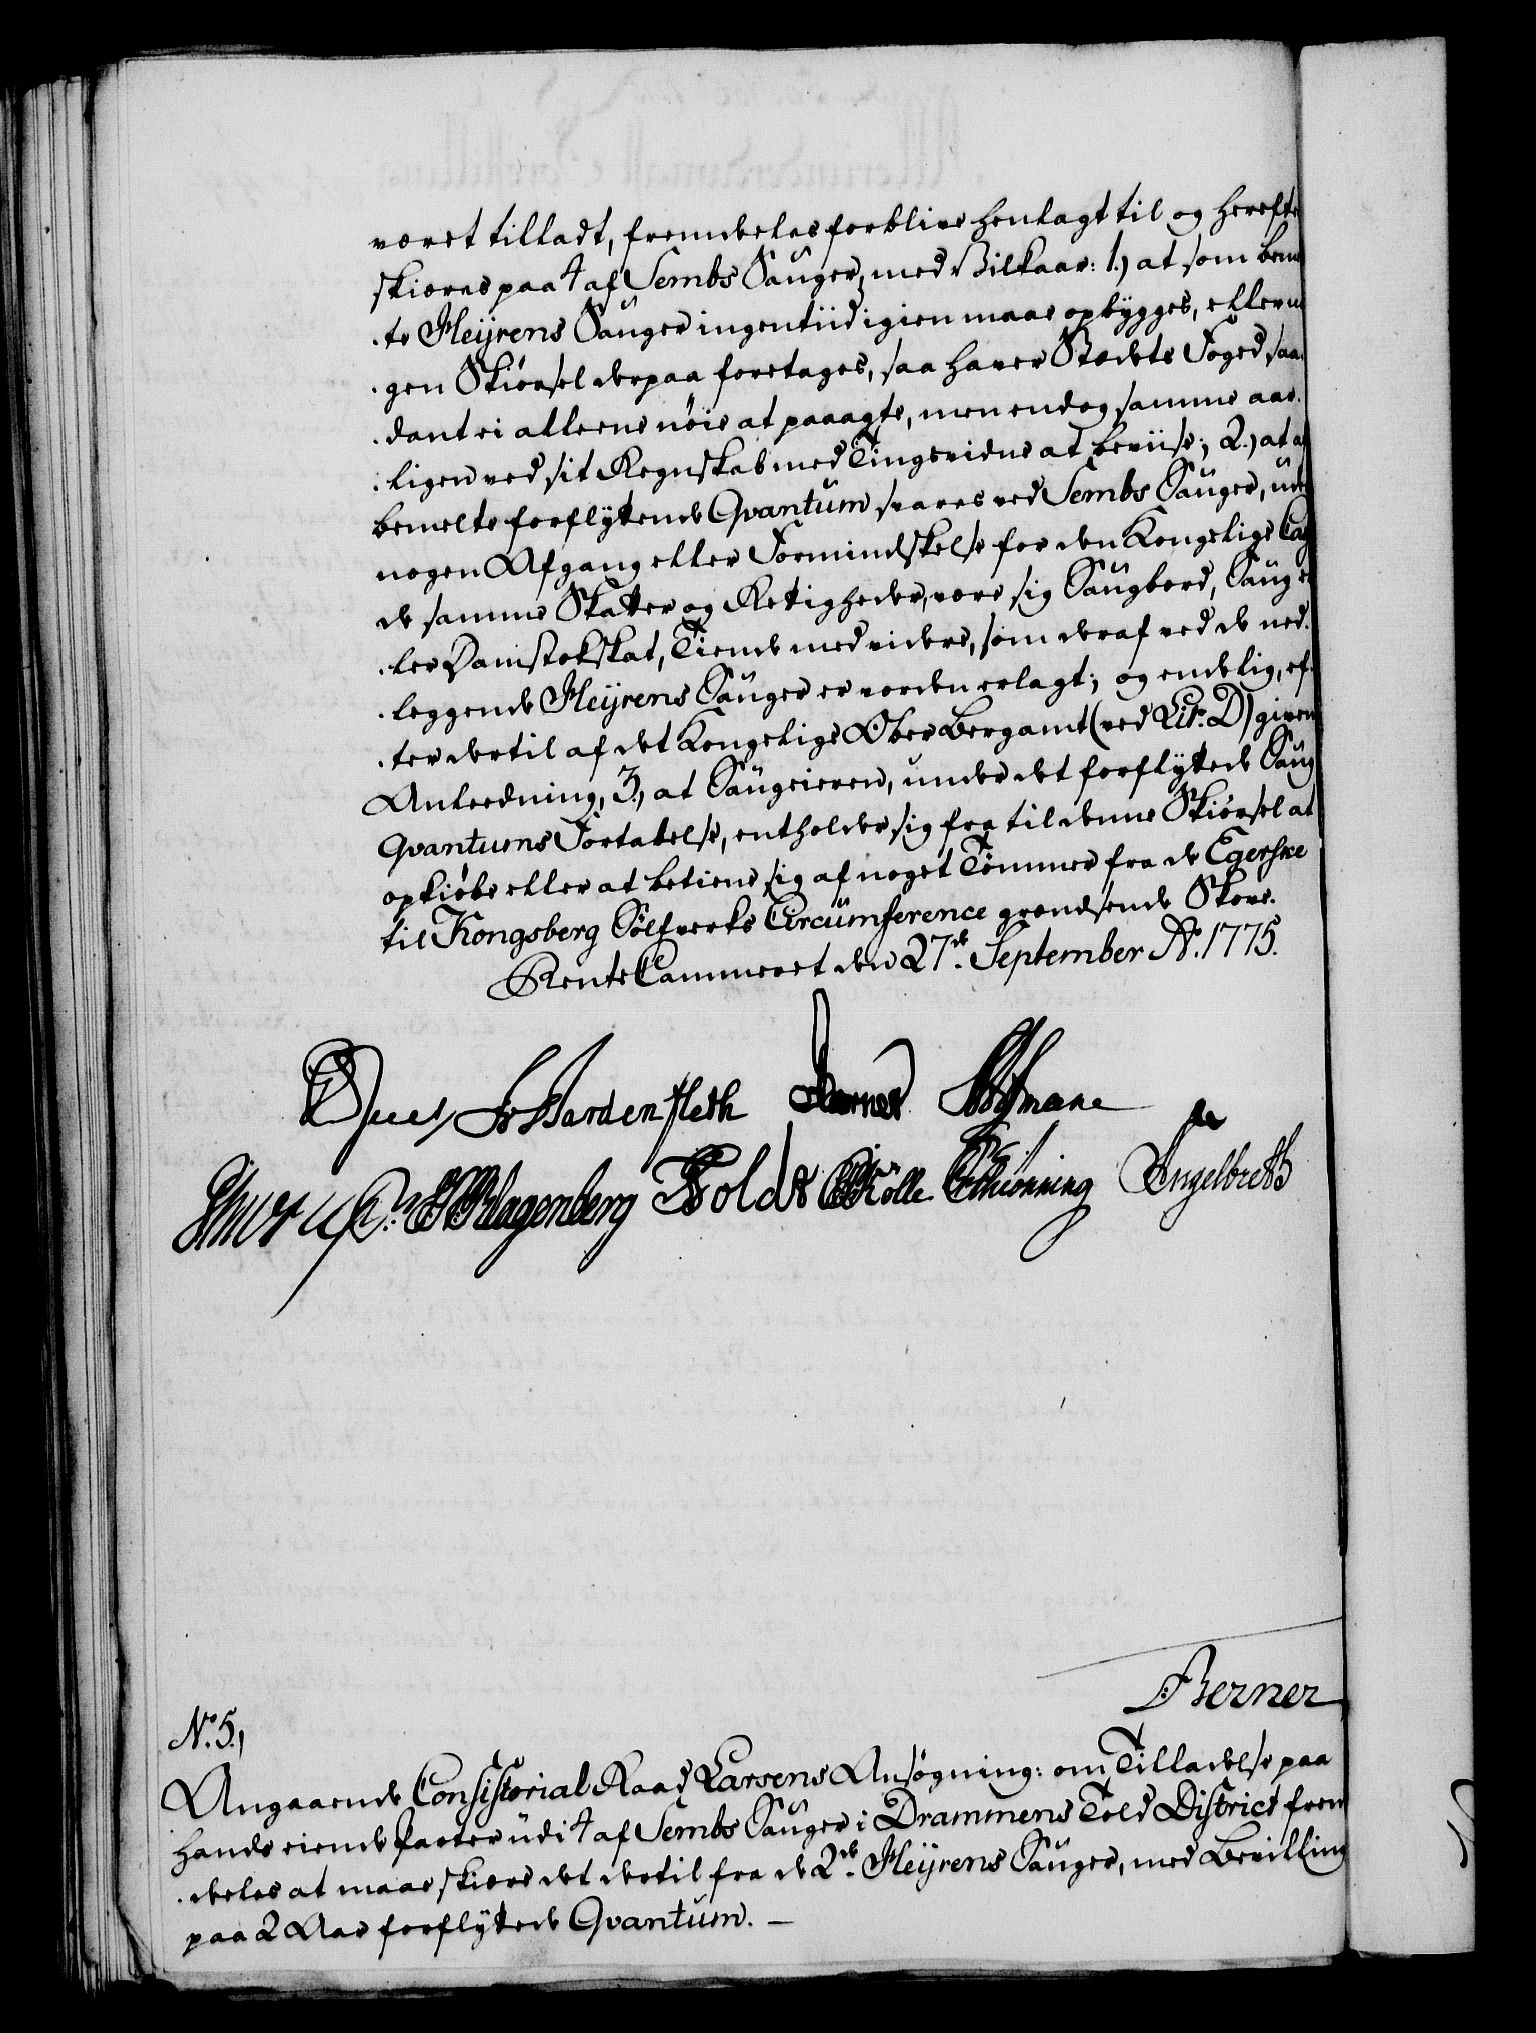 været tilladt, fremdeles forblive henlagt til og herefte
skiæres paa 4 af Sembs Sauger, med Vilkaar: 1.) at som bem
te Heyrens Sauger ingentiid igien maae opbygges, eller no
gen Skiørsel derpaa foretages, saa haver Stædets Foged saa
dant ei alleene nøie at paaagte, men endog samme aar
ligen ved sit Regnskab med Tingsvidne at beviise; 2.) at af
bemelte forflyttende Qvantum svares ved Sembs Sauger, uden
nogen Afgang eller Formindskelse for den Kongelige Cas
de samme Skatter og Rettigheder, være sig Saugbord, Saug el
ler Damstokskat, Tiende med videre, som deraf ved de ned
leggende Heyrens Sauger er vorden erlagt; og endelig, ef
ter dertil af det Kongelige Ober Bergamt (ved Litr. D) given
Anleedning, 3.) at Saugeieren, under det forflyttede Saug
Qvantums Fortabelse, entholder sig fra til denne Skiørsel at
opkiøbe eller at betiene sig af noget Tømmer fra de Egerske
til Kongsberg Sølfverks Circumference grændsende Skove.
RenteCammeret den 27de September Ao. 1775.
Juel J. Hardenfleth Berner
Klagenberg Holdt Kølle Schiønning Engelbreth
Berner
No. 5.)
Angaaende Consistorial Raad Larsens Ansøgning: om Tilladelse paa
hands eiende Parter udi 4 af Sembs Sauger i Drammens Told District frem
deles at maae skiære det dertil fra de 2de Heyrens Sauger, med Bevilling
paa 2 Aar forflyttede Qvantum. —